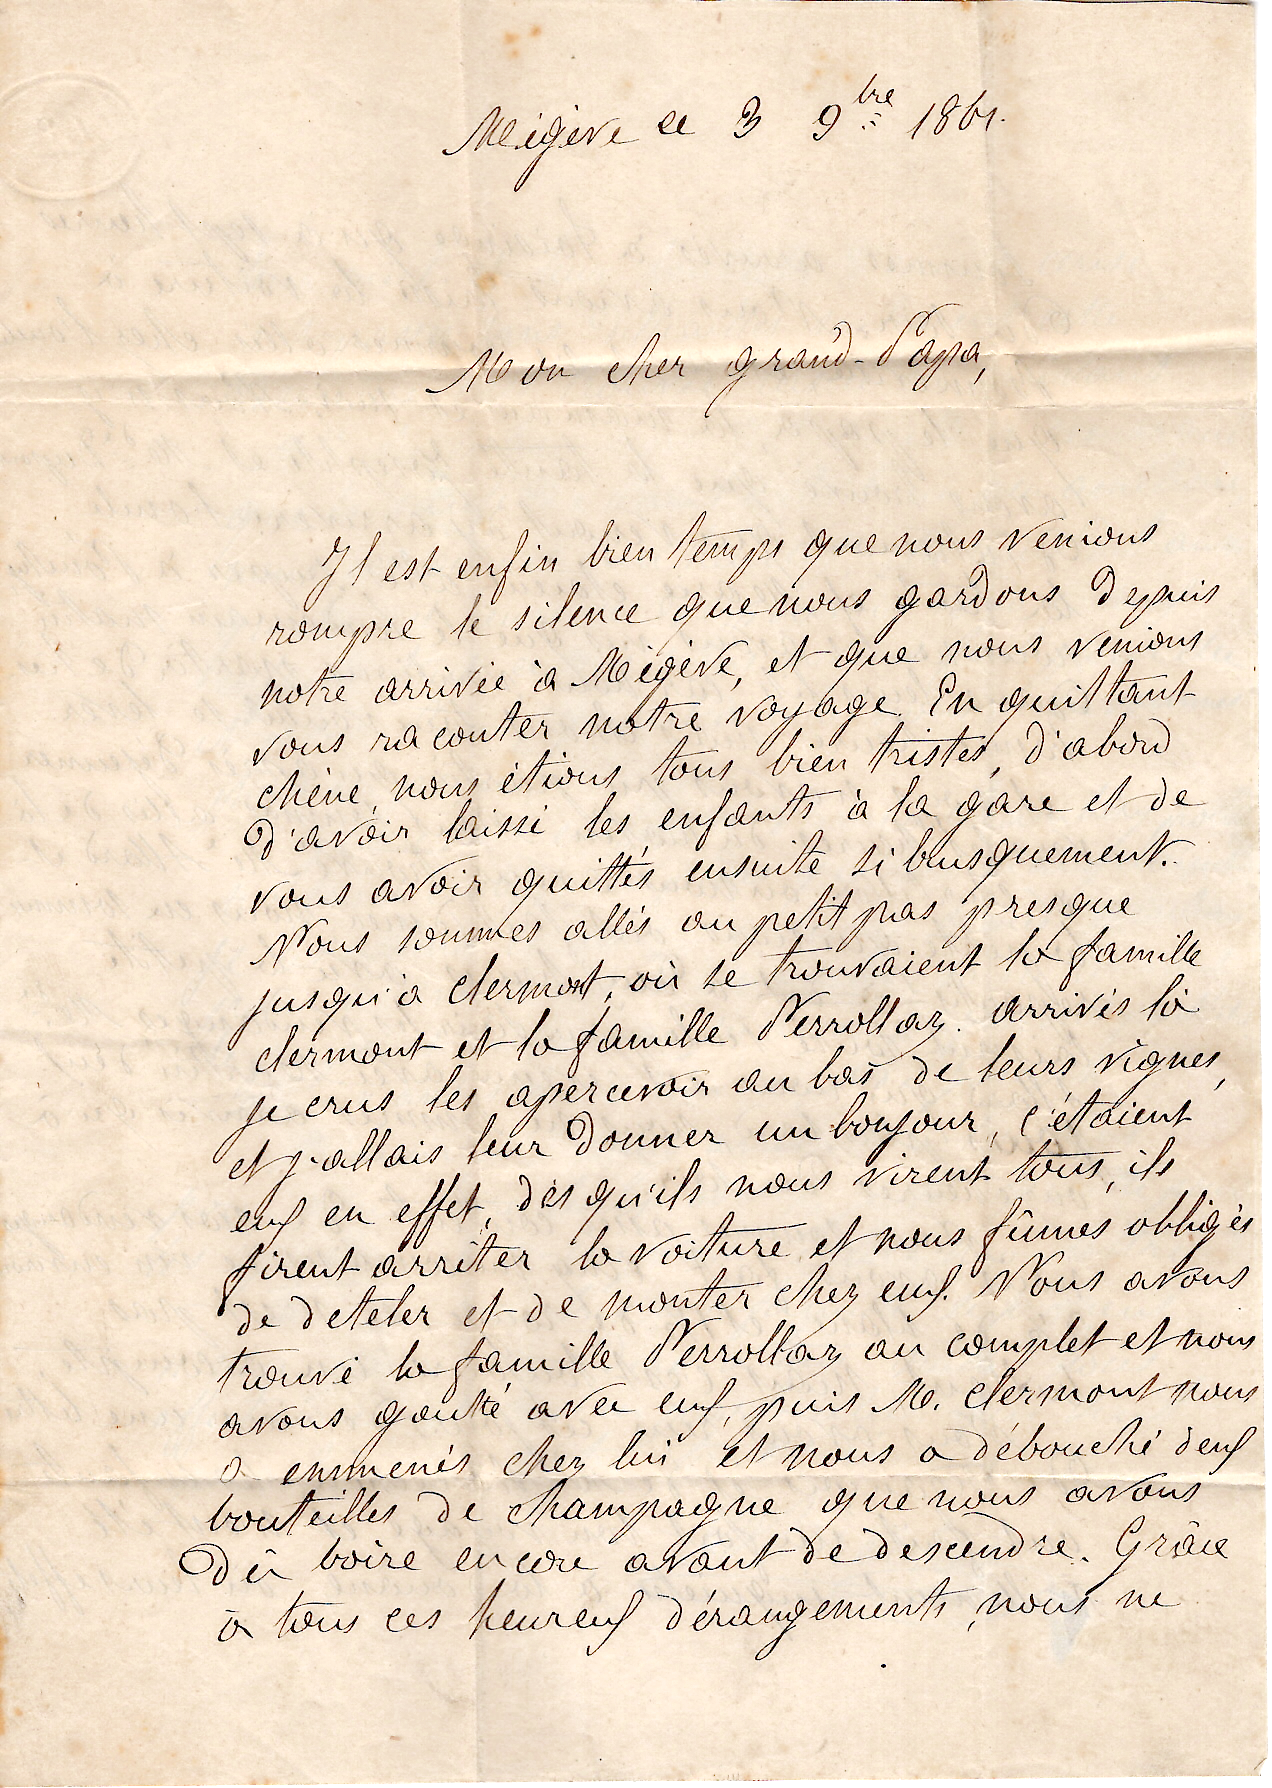 Mégève le 3 9bre 1861.
Mon cher grand-Papa,
Il est enfin bien temps que nous venions
rompre le silence que nous gardons depuis
notre arrivée à Mégève, et que nous venions
vous raconter notre voyage. En quittant
chêne, nous étions tous bien tristes, d'abord
d'avoir laissé les enfants à la gare et de
vous avoir quittés ensuite si brusquement.
Nous sommes allés au petit pas presque
jusqu'à clermont, où se trouvaient la famille
clermont et la famille Perrollaz. arrivés là
je crus les apercevoir au bas de leurs vignes,
et j'allais leur donner un bonjour, c'étaient
eux en effet, dès qu'ils nous virent tous, ils
firent arrêter la voiture et nous fûmes obligés
de deteler et de monter chez eux. Nous avons
trouvé la famille Perrollaz au complet et nous
avons goutté avec eux, puis M. clermont nous
a emmenés chez lui et nous a débouché deux
bouteilles de champagne que nous avons
dû boire encore avant de descendre. Grâce
à tous ces heureux dérangements, nous ne